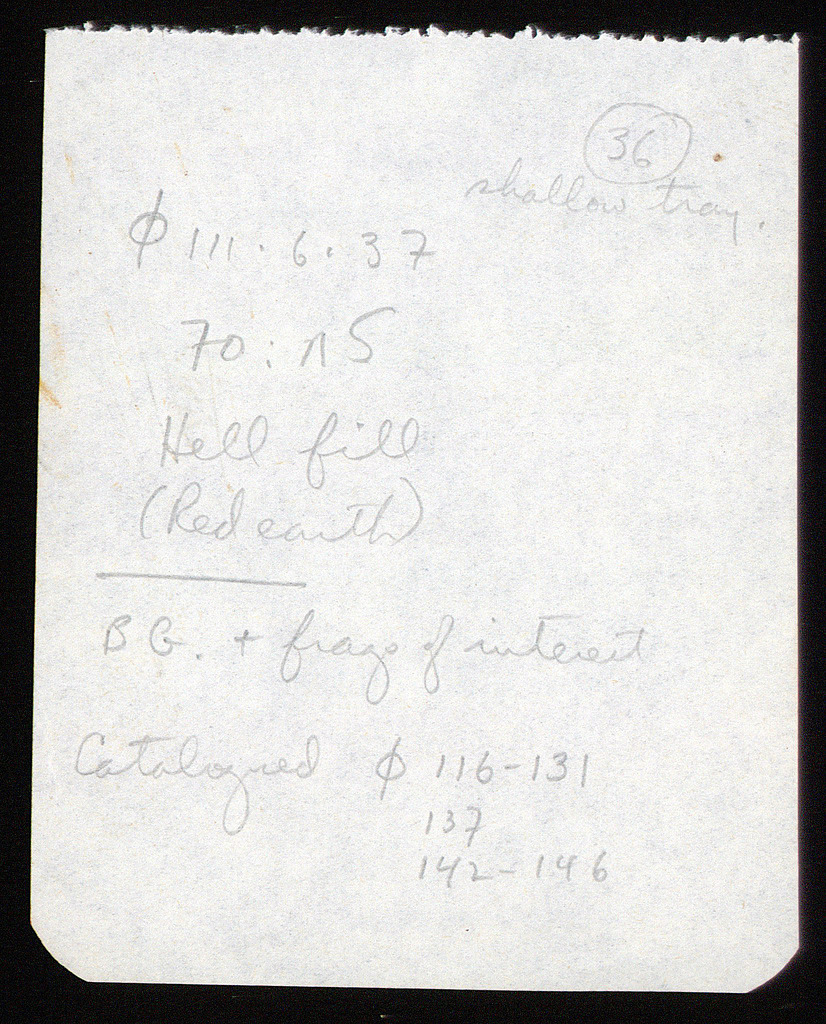 36
shallow tray.
φ 111 · 6 · 37
70 : ΛS
Hell fill
(Red earth)
B G. + frags of interest
Catalogued φ 116-131
137
142-146